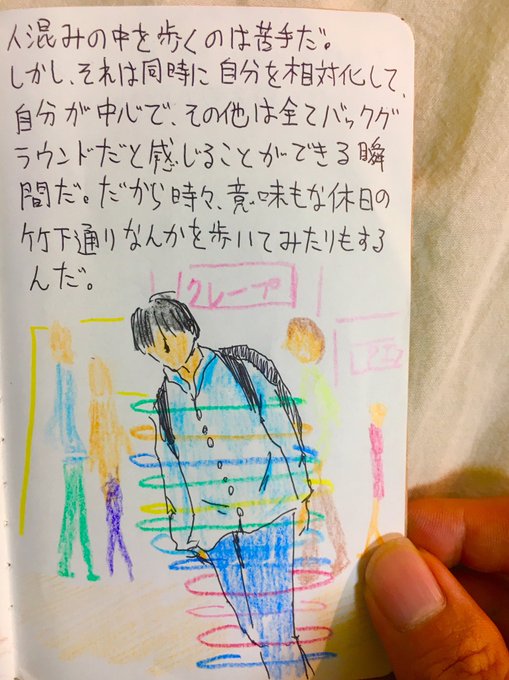 人混みの中を歩くのは苦手だ。
しかし、それは同時に自分を相対化して、
自分が中心で、その他は全てバックグ
ラウンドだと感じることができる瞬
間だ。だから時々、意味もな休日の
竹下通りなんかを歩いてみたりもする
んだ。
クレープ